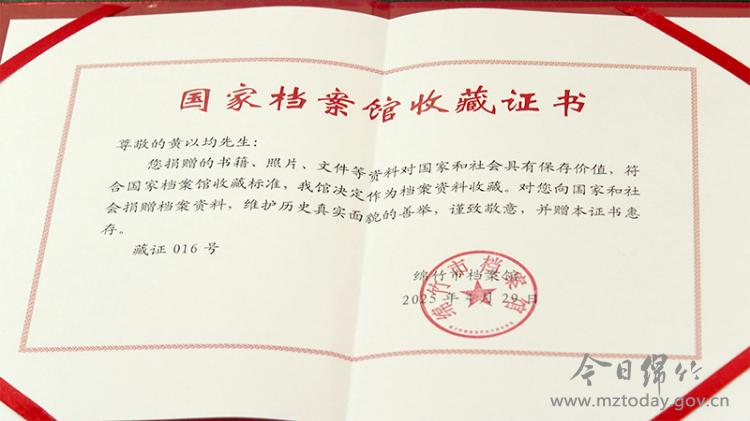 国家档案馆收藏证书
尊敬的黄以均先生：
您捐赠的书籍、照片、文件等资料对国家和社会具有保存价值，符
合国家档案馆收藏标准，我馆决定作为档案资料收藏。对您向国家和社
会捐赠档案资料，维护历史真实面貌的善举，谨致敬意，并赠本证书惠
存。
藏证 016 号
绵竹市档案馆
2025 年 月 29 日
绵竹市档案馆
今日绵竹
www.mztoday.gov.cn